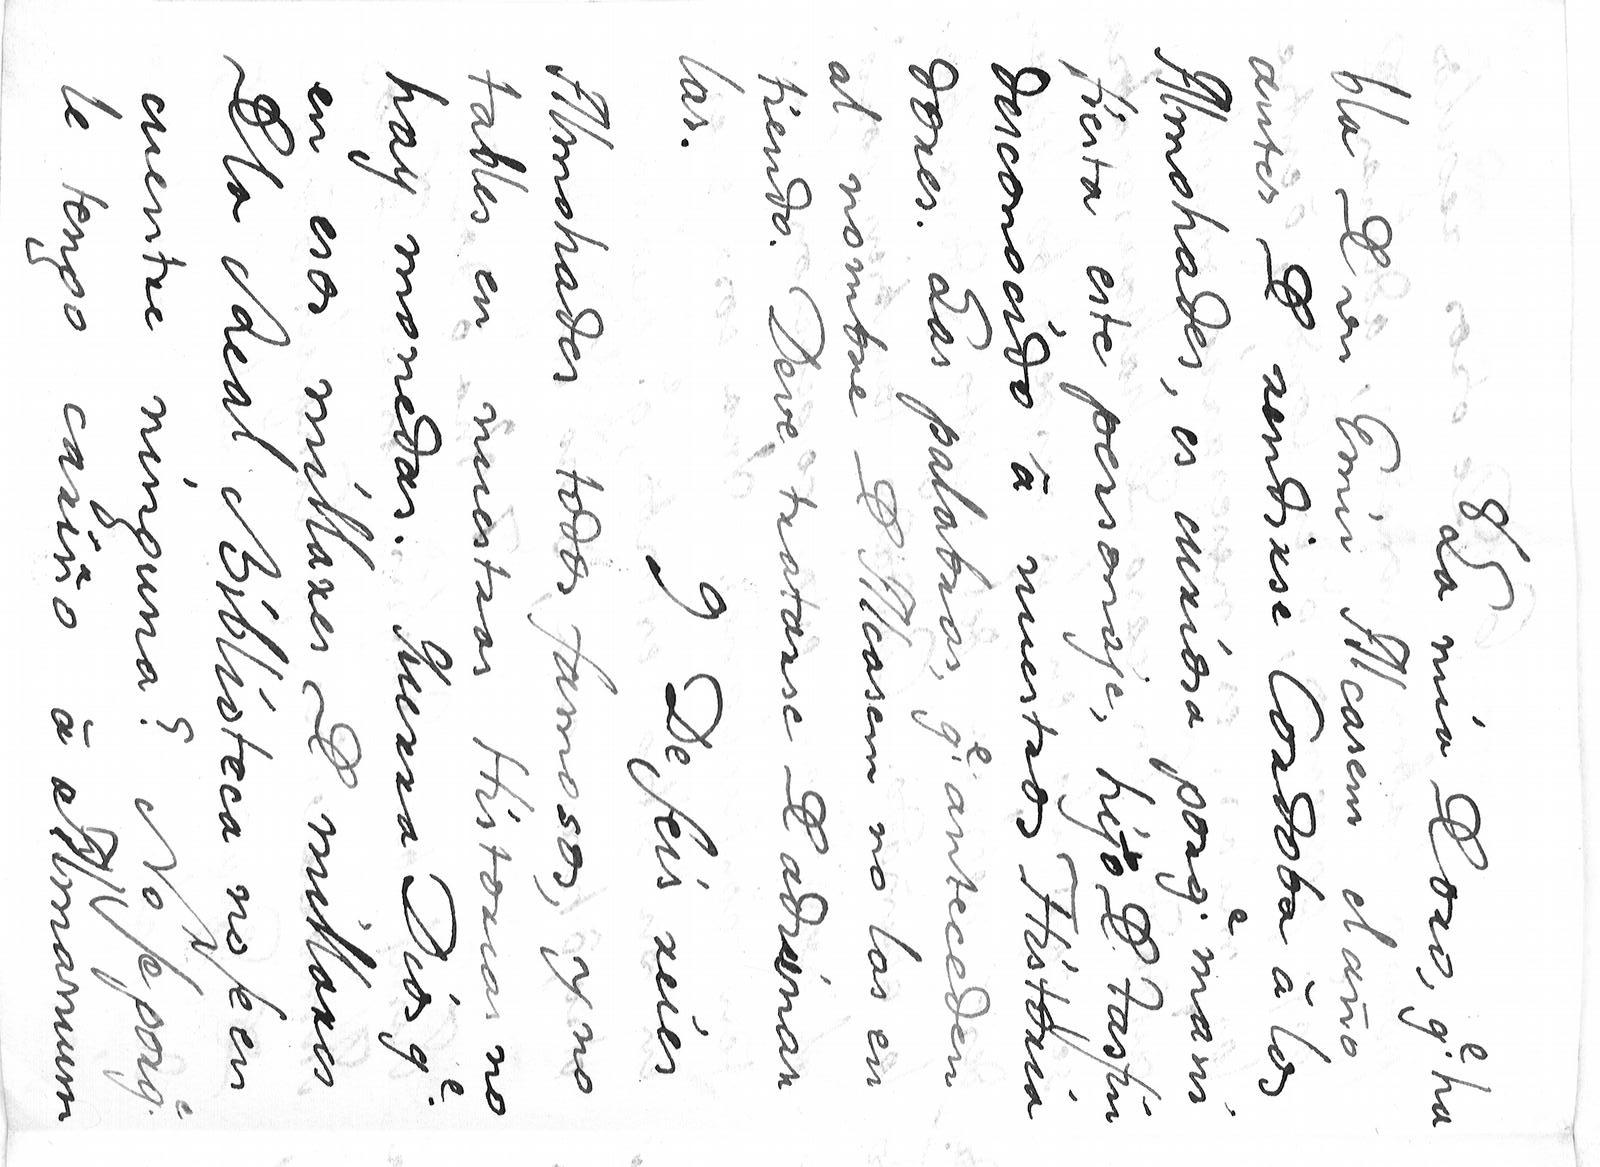 8
La mia de oro, q.e ha
bla de un Emir Alcasem el año
antes de rendirse Cordoba à los
Almohades, es curiosa porq.e mani
fiesta este personaje, hijo de Tasfin
desconocido à nuestros Historia
dores. Las palabras, q.e anteceden
al nombre de Alcasem no las en
tiendo. Deve tratarse de adivinar
las.
9 De seis reies
Almohades todos famosos, y no
tables en nuestras Historias no
hay monedas. Querra Dios q.e
en esos millares de millares
de la Real Biblioteca no se en
cuentre ninguna? No se porq.e
le tengo cariño à Almamum